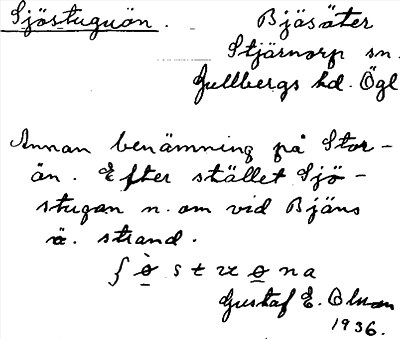 Sjöstuguån. Bjäsäter
Stjärnorp sn.
Gullbergs hd. Ögl
Annan benämning på Stor-
ån. Efter stället Sjö-
stugan n. om vid Bjäns
ö. strand.
ʃ ò̱ s t ʉ o̱ n a
Gustaf E. Olsson
1936.